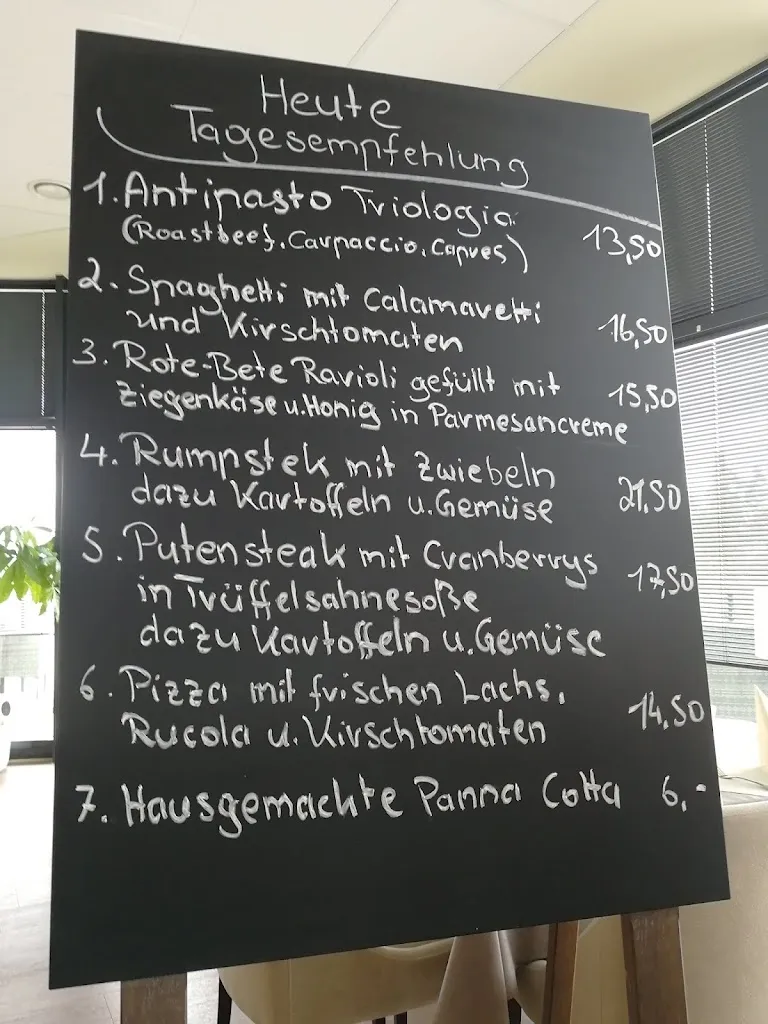 Heute
Tagesempfehlung
1. Antipasto Triologia
(Roastbeef, Carpaccio, Capres) 13,50
2. Spaghetti mit Calamaretti
und Kirschtomaten 16,50
3. Rote-Bete Ravioli gefüllt mit
Ziegenkäse u. Honig in Parmesancreme 15,50
4. Rumpstek mit Zwiebeln
dazu Kartoffeln u. Gemüse 21,50
5. Putensteak mit Cranberrys 17,50
in Trüffelsahnesoße
dazu Kartoffeln u. Gemüse
6. Pizza mit frischen Lachs,
Rucola u. Kirschtomaten 14,50
7. Hausgemachte Panna Cotta 6,-